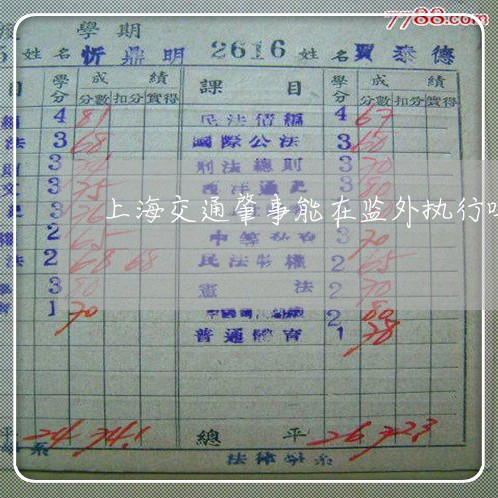 7788.com
學期
姓名 忻鼎明 2616 姓名 賈泰德
目 學分 成績 課目 學分 成績
分數 扣分 實得 分數 扣分 實得
4 81 民法債編 4 67
法 3 68 國際公法 3 60
3 刑法總則 3 70
3 75 3 80
上海交通肇事能在监外执行吗
2 65 3 70
法 2 68 68 民法物權 2 65
3 80 憲法 2 70
1 70 2 80
普通體育 1 78
平 24 74.1 總平 26 72.3
系 法律學系